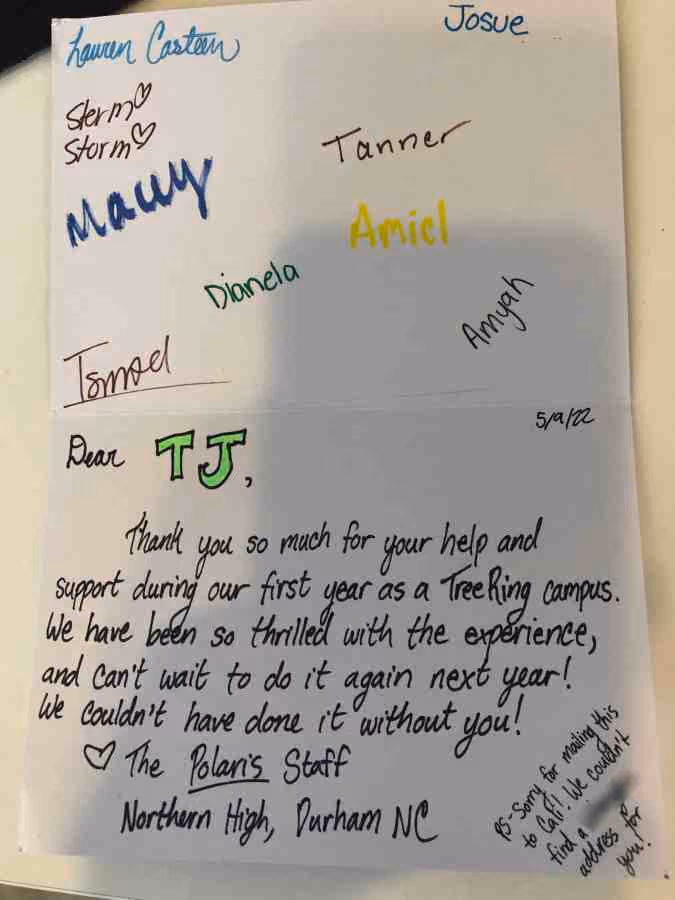 Lauren Casteen
Josue
Sterm♡
Storm♡
Tanner
Macy
Amiel
Dianela
Amyah
Ismael
5/9/22
Dear TJ,
Thank you so much for your help and
support during our first year as a TreeRing campus.
We have been so thrilled with the experience,
and can't wait to do it again next year!
We couldn't have done it without you!
♡ The Polaris Staff
Northern High, Durham NC
PS-Sorry for mailing this
to Cali! We couldn't
find a
address for
you!